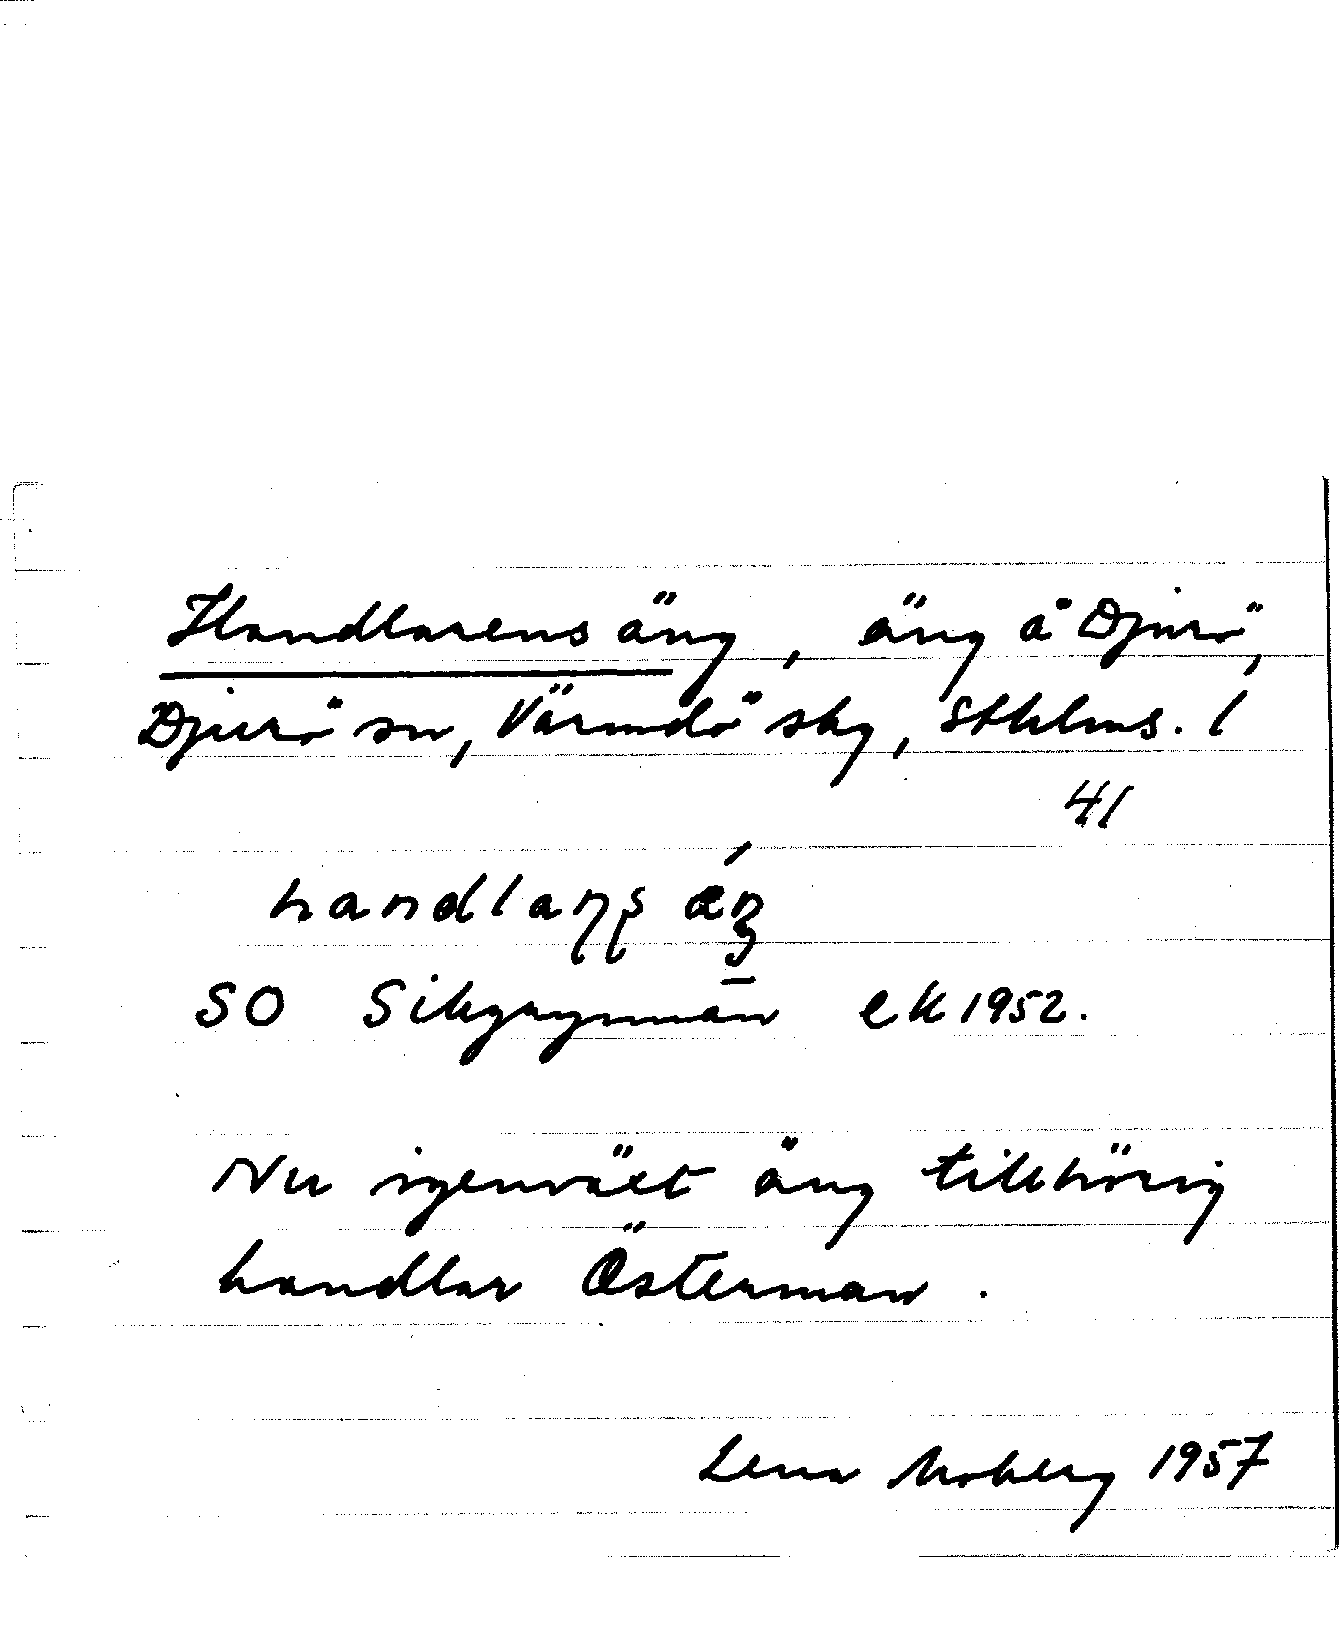 Handlarens äng, äng å Djurö,
Djurö sn, Värmdö skg, Sthlms. l
41
SO ek 1952.
Nu igenväxt äng tillhörig
handlar Österman.
Lena Moberg 1957